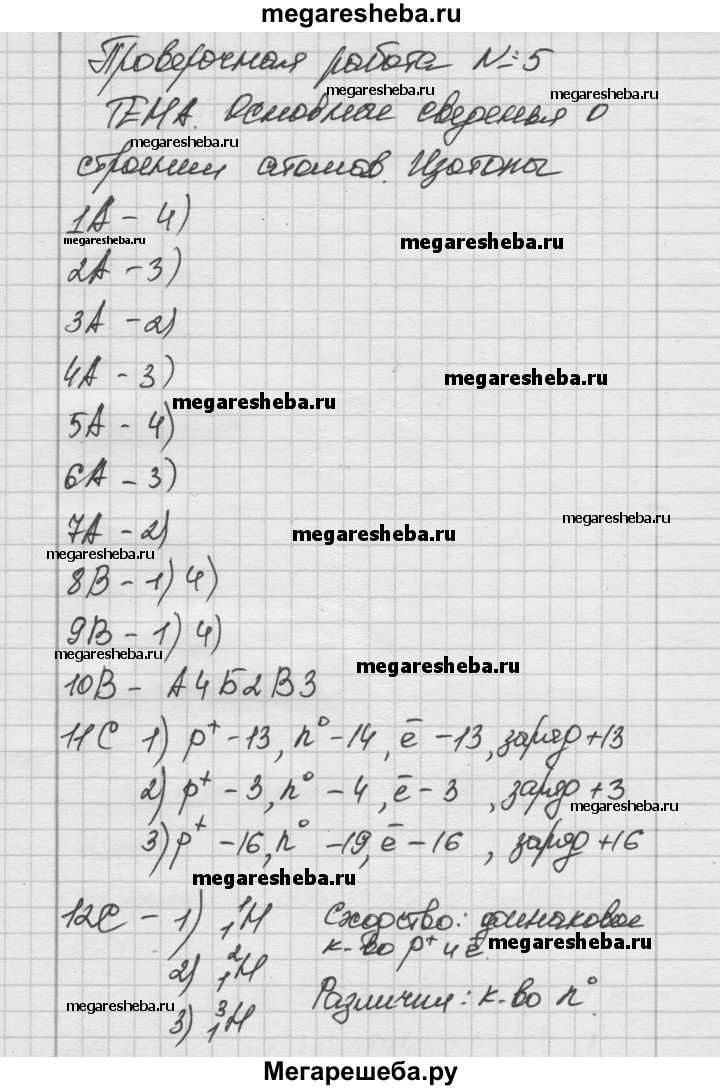 megaresheba.ru
Проверочная работа №5
megaresheba.ru
megaresheba.ru
ТЕМА. Основные сведенья о
megaresheba.ru
строении атомов. Изотопы
1А - 4)
megaresheba.ru
megaresheba.ru
2А - 3)
3А - 2)
4А - 3)
megaresheba.ru
megaresheba.ru
5А - 4)
6А - 3)
7А - 2)
megaresheba.ru
megaresheba.ru
megaresheba.ru
8В - 1) 4)
9В - 1) 4)
megaresheba.ru
megaresheba.ru
10В - А4Б2В3
11С 1) p⁺ - 13, n⁰ - 14, ē - 13, заряд +13
2) p⁺ - 3, n⁰ - 4, ē - 3, заряд +3
megaresheba.ru
3) p⁺ - 16, n⁰ - 19, ē - 16, заряд +16
megaresheba.ru
12С - 1) ¹₁H Сходство: одинаковое
к-во p⁺ и ē.
megaresheba.ru
2) ²₁H
Различия: к-во n⁰.
megaresheba.ru
3) ³₁H
Мегарешеба.ру